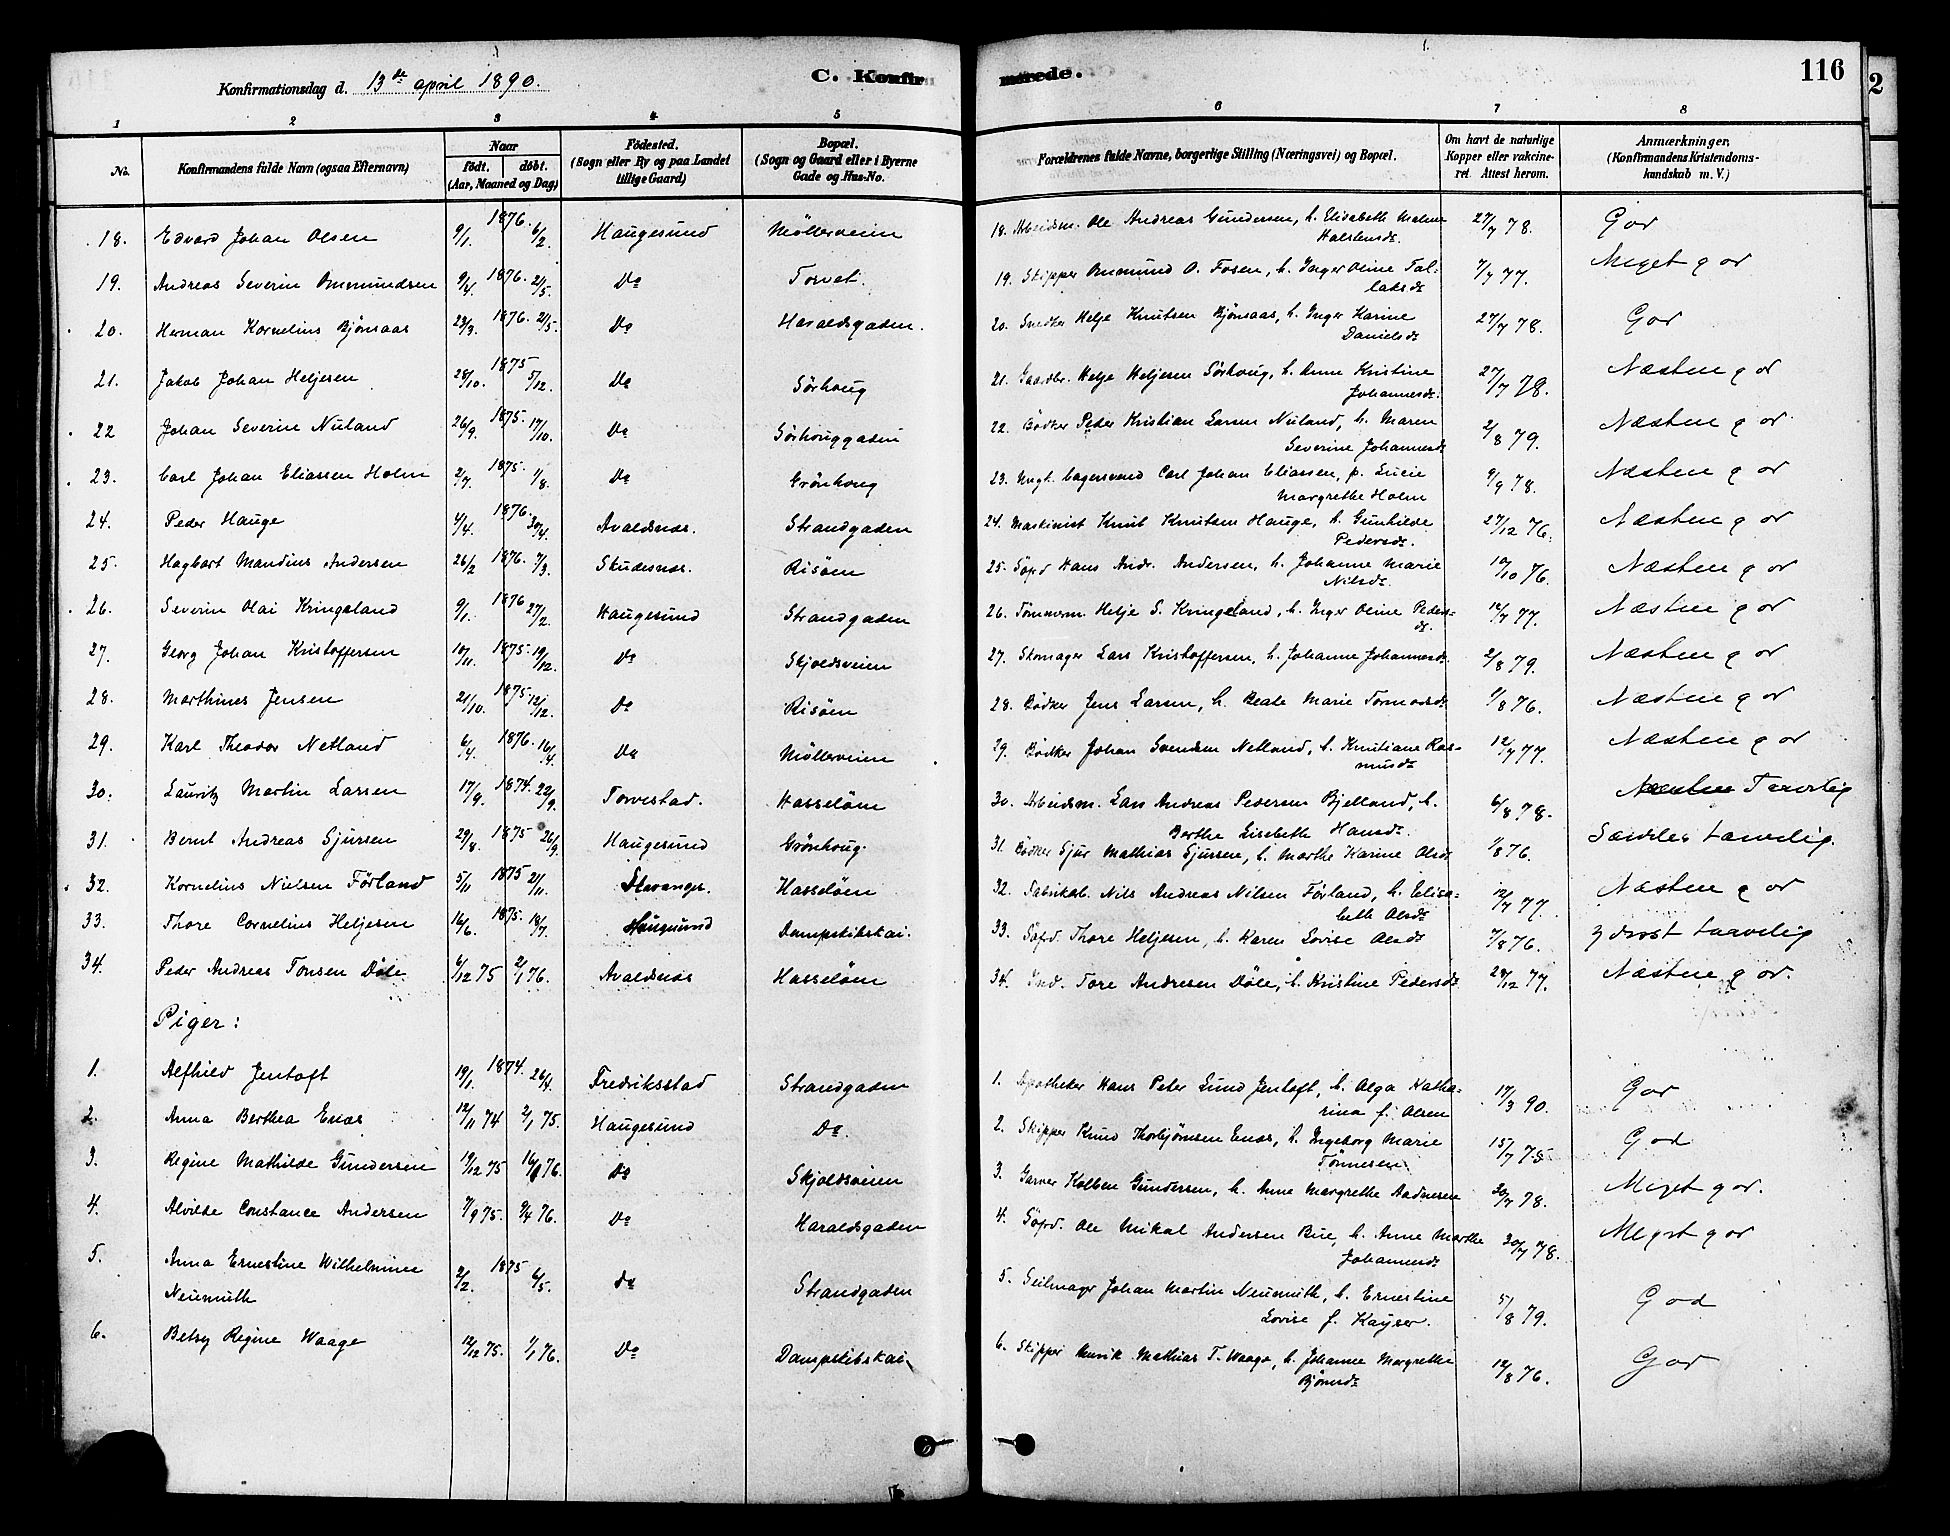 Konfirmationsdag d. 13de april 1890.
C. Konfirmerede.
116
2
1 2 3 4 5 6 7 8
No.
Konfirmandens fulde Navn (ogsaa Efternavn)
Naar
födt. döbt.
(Aar, Maaned og Dag)
Födested.
(Sogn eller By og paa Landet
tillige Gaard)
Bopæl.
(Sogn og Gaard eller i Byerne
Gade og Hus-No.
Forældrenes fulde Navne, borgerlige Stilling (Næringsvei) og Bopæl.
Om havt de naturlige
Kopper eller vakcine-
ret. Attest herom.
Anmærkninger,
(Konfirmandens Kristendoms-
kundskab m. V.)
18. Edvard Johan Olsen 9/1. 1876. 6/2. Haugesund Möllerveien 18. Arbeidsm. Ole Andreas Gundersen, h. Elisabeth Malene
Halstensdr. 27/7 78. God
19. Andreas Severin Ommundsen 9/4. 1876. 2/5. Do Torvet. 19. Skipper Ommund O. Fosen, h. Inger Oline Tol-
laksdr 7/7 77. Meget god
20. Herman Kornelius Bjönsaas 23/3. 1876. 2/5. Do Haraldsgaden. 20. Snedker Helje Knutsen Bjönsaas, h. Inger Karine
Danielsdr 27/7 78. God
21. Jakob Johan Heljesen 28/10. 1875 5/12. Do Sörhoug 21. Gaardbr. Helje Heljesen Sörhoug, h. Anne Kristine
Johannesdr. 27/7 78. Næsten god
22 Johan Severin Nuland 26/9. 1875. 17/10. Do Sörhouggaden 22. Bödker Peder Kristian Larsen Nuland, h. Maren
Severine Johannesdr 2/8 79. Næsten god
23. Carl Johan Eliassen Holm 2/7. 1875. 1/8. Do Grönhoug 23. Ungk. bagersvend Carl Johan Eliassen, p. Lucie
Margrethe Holm 9/9 78. Næsten god
24. Peder Hauge 4/4. 1876. 30/4. Avaldsnæs. Strandgaden 24. Maskinist Knut Knutsen Hauge, h. Gunhilde
Pedersdr. 27/12 76. Næsten god
25. Hagbart Mandius Andersen 26/2 1876. 7/3. Skudesnæs. Risöen 25. Söfd Hans Andr. Andersen, h. Johanne Marie
Nilsdr. 10/10 76. Næsten god
26. Severin Olai Kringeland 9/1. 1876 27/2. Haugesund Strandgaden 26. Tömmerm. Helje S. Kringeland, h. Inger Oline Peders-
dr. 12/7 77. Næsten god
27. Georg Johan Kristoffersen 10/11. 1875. 19/12. Do Skjoldsveien 27. Skomager Lars Kristoffersen, h. Johanne Johannesdr. 2/8 79. Næsten god
28. Marthines Jensen 21/10. 1875. 12/12. Do Risöen 28. Bödker Jens Larsen, h. Beate Marie Tormodsdr 1/8 76. Næsten god
29. Karl Theodor Netland 6/4. 1876. 16/4. Do Möllerveien 29. Bödker Johan Svendsen Netland, h. Knutiane Ras-
musdr 12/7 77. Næsten god
30. Lauritz Martin Larsen 17/9. 1874. 22/9. Torvestad. Hasselöen 30. Arbeidsm. Lars Andreas Pedersen Bjelland, h.
Berthe Lisebeth Hansdr. 6/8 78. Næsten Tarvelig
31. Bernt Andreas Sjursen 29/8. 1875 26/9. Haugesund Grönhoug. 31. Bödker Sjur Mathias Sjursen, h. Marthe Karine Olsdr 1/8 76. Særdeles tarvelig.
32. Kornelius Nielsen Förland 5/11 1875 21/11. Stavanger. Hasselöen 32. Fabrikab. Nils Andreas Nilsen Förland, h. Elisa-
beth Olsdr 12/7 77. Næsten god
33. Thore Cornelius Heljesen 16/6. 1875. 18/7. Haugesund Dampskibskai. 33. Söfd. Thore Heljesen, h. Karen Lovise Olsdr 7/8 76. Yderst tarvelig
34. Peder Andreas Tonsen Döle 6/12 75 2/1 76. Avaldsnæs Hasselöen 34. Ind. Tore Andresen Döle, h. Kristine Pedersdr 28/12 77. Næsten god.
Piger:
1. Alfhild Jentoft 19/1. 1874. 26/4. Fredriksstad Strandgaden 1. Apotheker Hans Peter Lund Jentoft, h. Olga Katha-
rina f. Olsen 17/3 90. God
2. Anna Berthea Enæs 12/11 74 2/1 75. Haugesund Do. 2. Skipper Knud Thorbjörnsen Enæs, h. Ingeborg Marie
Tönnesen 15/7 75 God
3. Regine Mathilde Gundersen 19/12 75 16/1 76. Do Skjoldsveien 3. Garver Kolben Gundersen, h. Anne Margrethe Aadnesen 20/7 78. Meget god.
4. Alvilde Constance Andersen 7/9 75. 9/4 76. Do Haraldsgaden 4. Söfd. Ole Mikal Andersen Bue, h. Anne Marthe
Johannesdr 20/7 78. Meget god
5. Anna Ernestine Wilhelmine
Neumuth 2/2. 1875 6/5. do Strandgaden 5. Seilmager Johan Martin Neumuth, h. Ernestine
Lovise f. Kayser. 5/8 79. God
6. Betsy Regine Waage 12/12 75. 1/1 76. Do Dampskibskai. 6. Skipper Henrik Mathias T. Waage, h. Johanne Margrethe
Bjönsdr 12/8 76. God